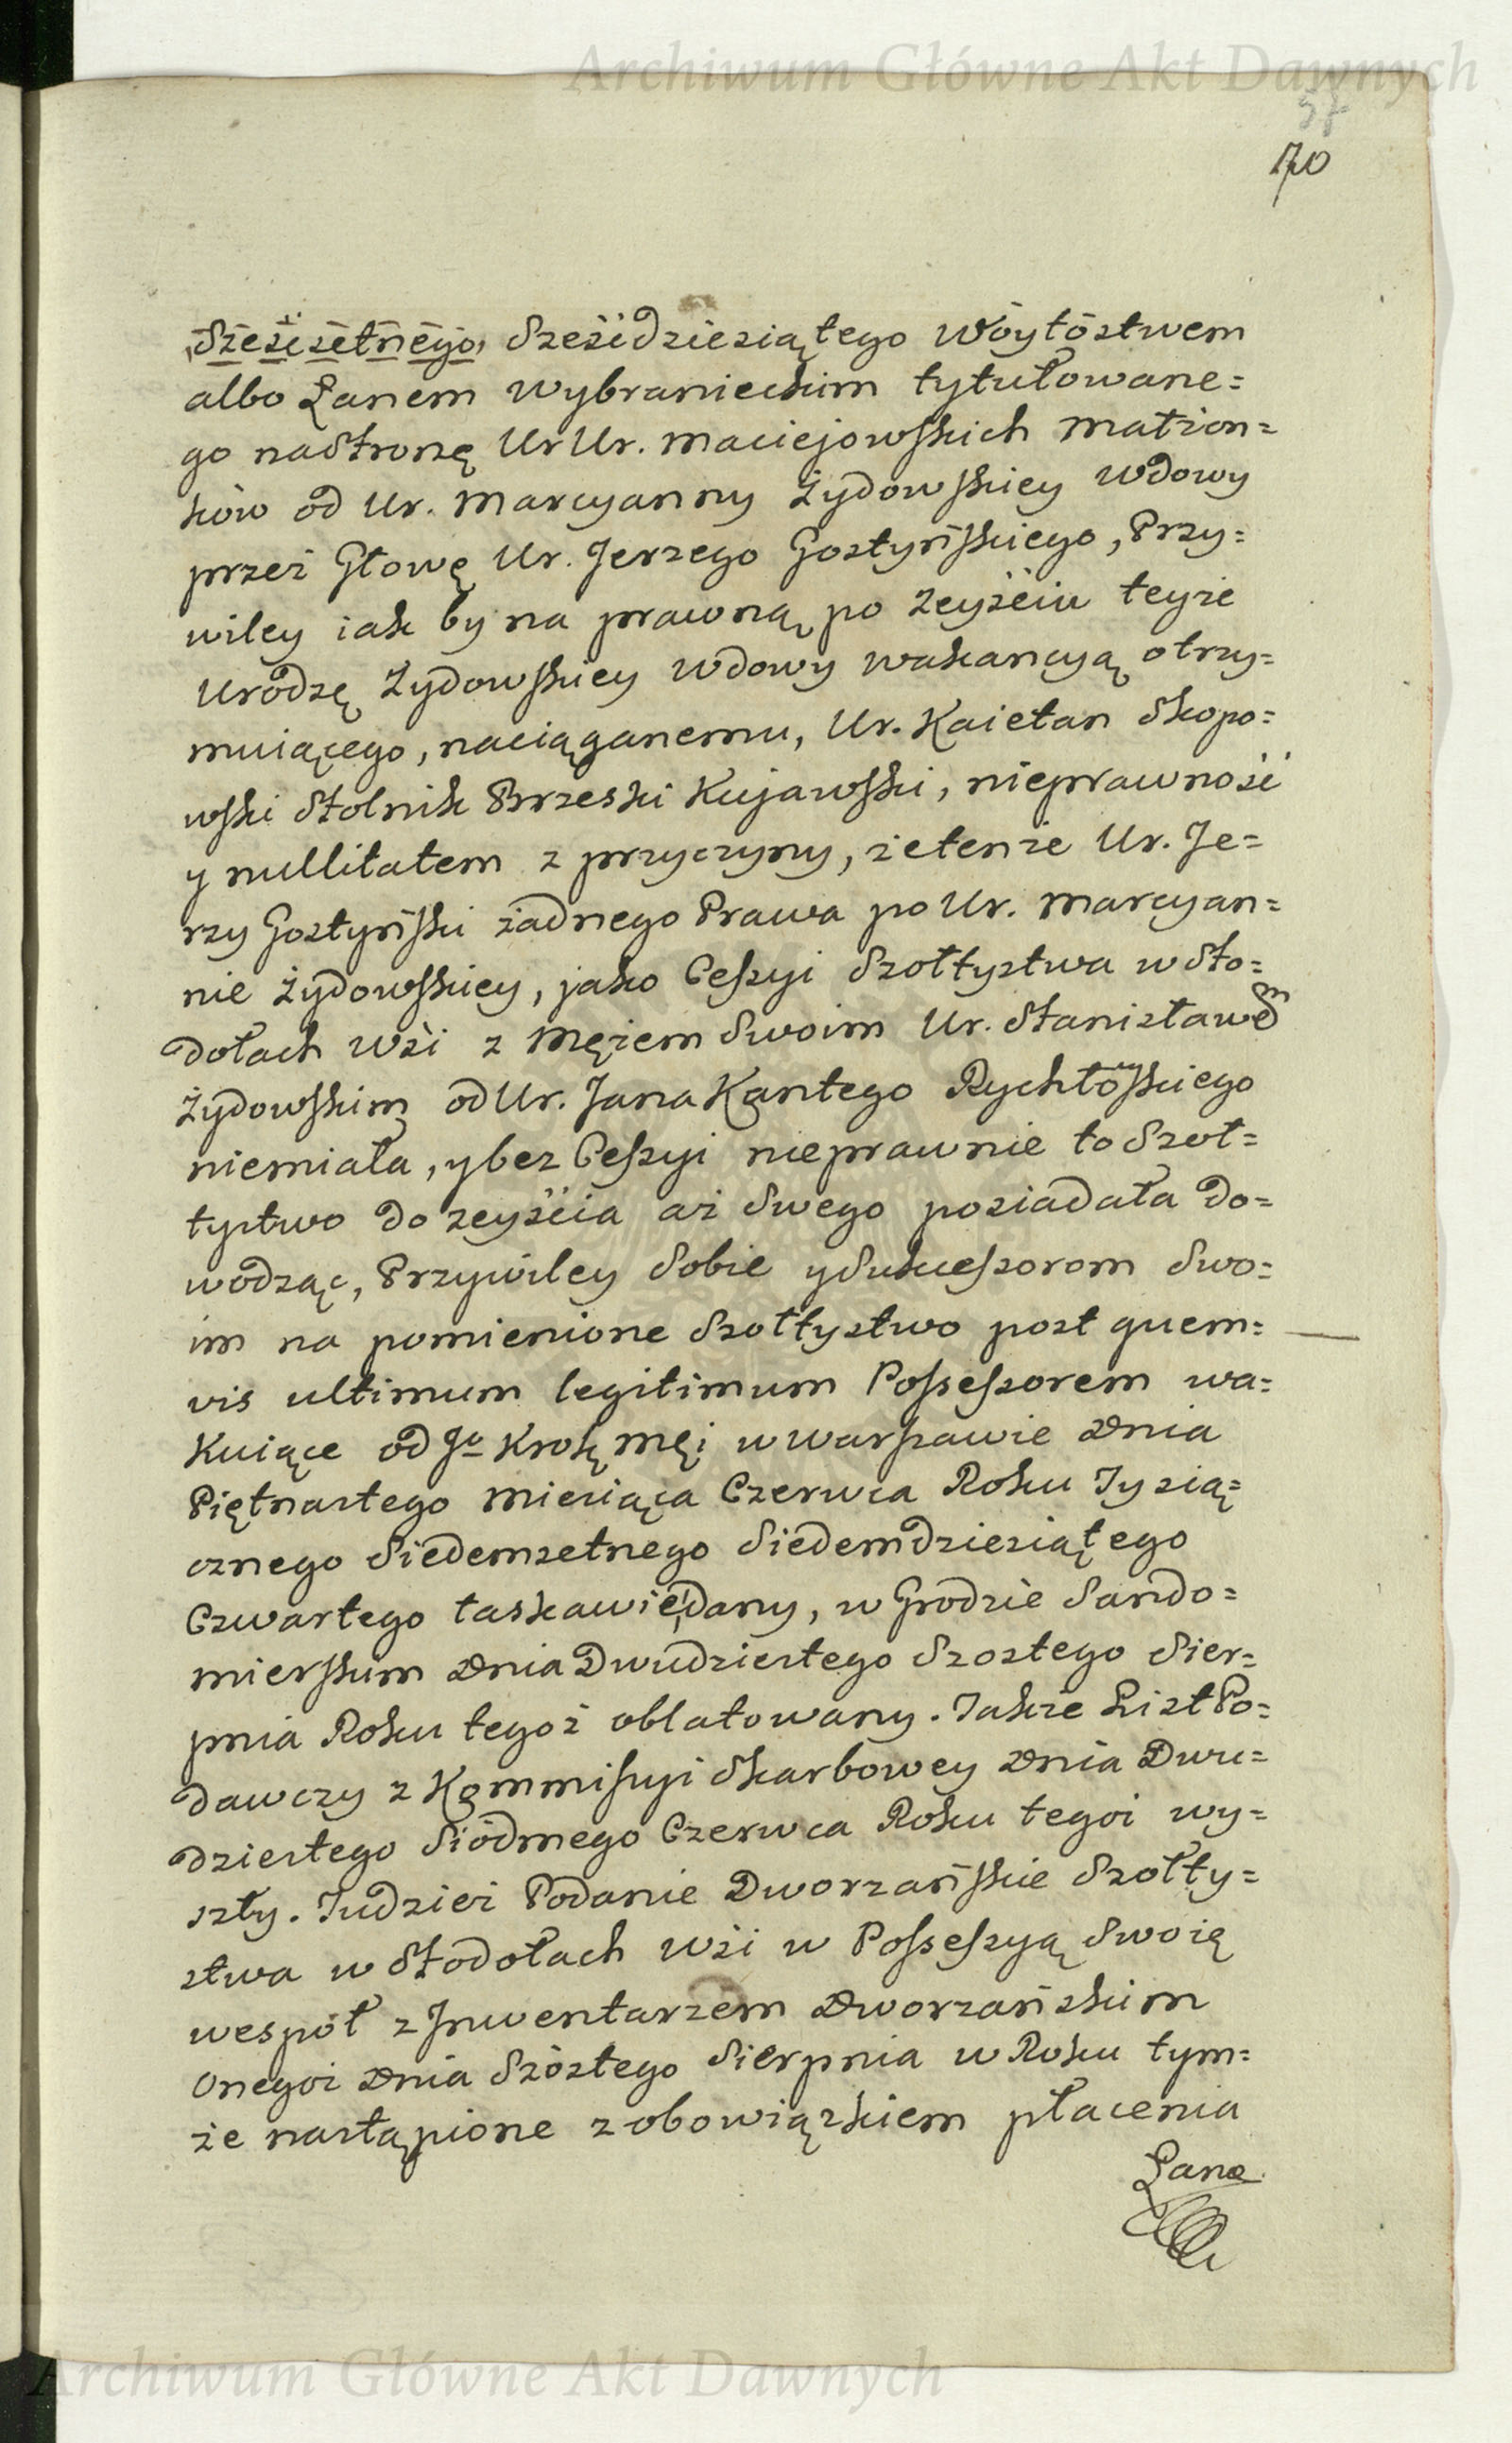 Archiwum Główne Akt Dawnych
170
Sześćsetnego, Sześćdziesiątego Wóytóstwem
albo Łanem Wybranieckim tytułowane=
go na Stronę Ur Ur. Maciejowskich Małżon=
ków od Ur. Marcyanny Żydowskiey Wdowy
przez Głowę Ur. Jerzego Gostyńskiego, Przy=
wiley iak by na prawną po zeyściu teyże
Urodzę Żydowskiey Wdowy wakancyą otrzy=
muiącego, naciąganemu, Ur. Kaietan Skopo=
wski Stolnik Brzeski Kujawski, nieprawność
y nullitatem z przyczyny, że tenże Ur. Je=
rzy Gostyński żadnego Prawa po Ur. Marcyan=
nie Żydowskiey, jako Cessyi Szołtystwa w Sto=
dołach Wśi z Mężem Swoim Ur. Stanisławem
Żydowskim od Ur. Jana Kantego Rychłowskiego
niemiała, y bez Cessyi nieprawnie to Szoł=
tystwo do zeyścia aż Swego posiadała do=
wodząc, Przywiley Sobie y Sukcessorom Swo=
im na pomienione Szołtystwo post quem=
vis ultimum legitimum Possessorem wa=
kuiące od Jo Krolę Męi w Warszawie Dnia
Piętnastego Miesiąca Czerwca Roku Tysią=
cznego Siedemsetnego Siedemdziesiątego
Czwartego łaskawie dany, w Grodzie Sando=
mierskim Dnia Dwudziestego Szostego Sier=
pnia Roku tegoż oblatowany. Także List Po=
dawczy z Kommissyi Skarbowey Dnia Dwu=
dziestego Siódmego Czerwca Roku tegoż wy=
szły. Tudzież Podanie Dworzańskie Szołty=
stwa w Stodołach Wśi w Possessyą Swoię
wespół z Inwentarzem Dworzańskim
Onegoż Dnia Szóstego Sierpnia w Roku tym=
że nastąpione z obowiązkiem płacenia
Łano
Archiwum Główne Akt Dawnych